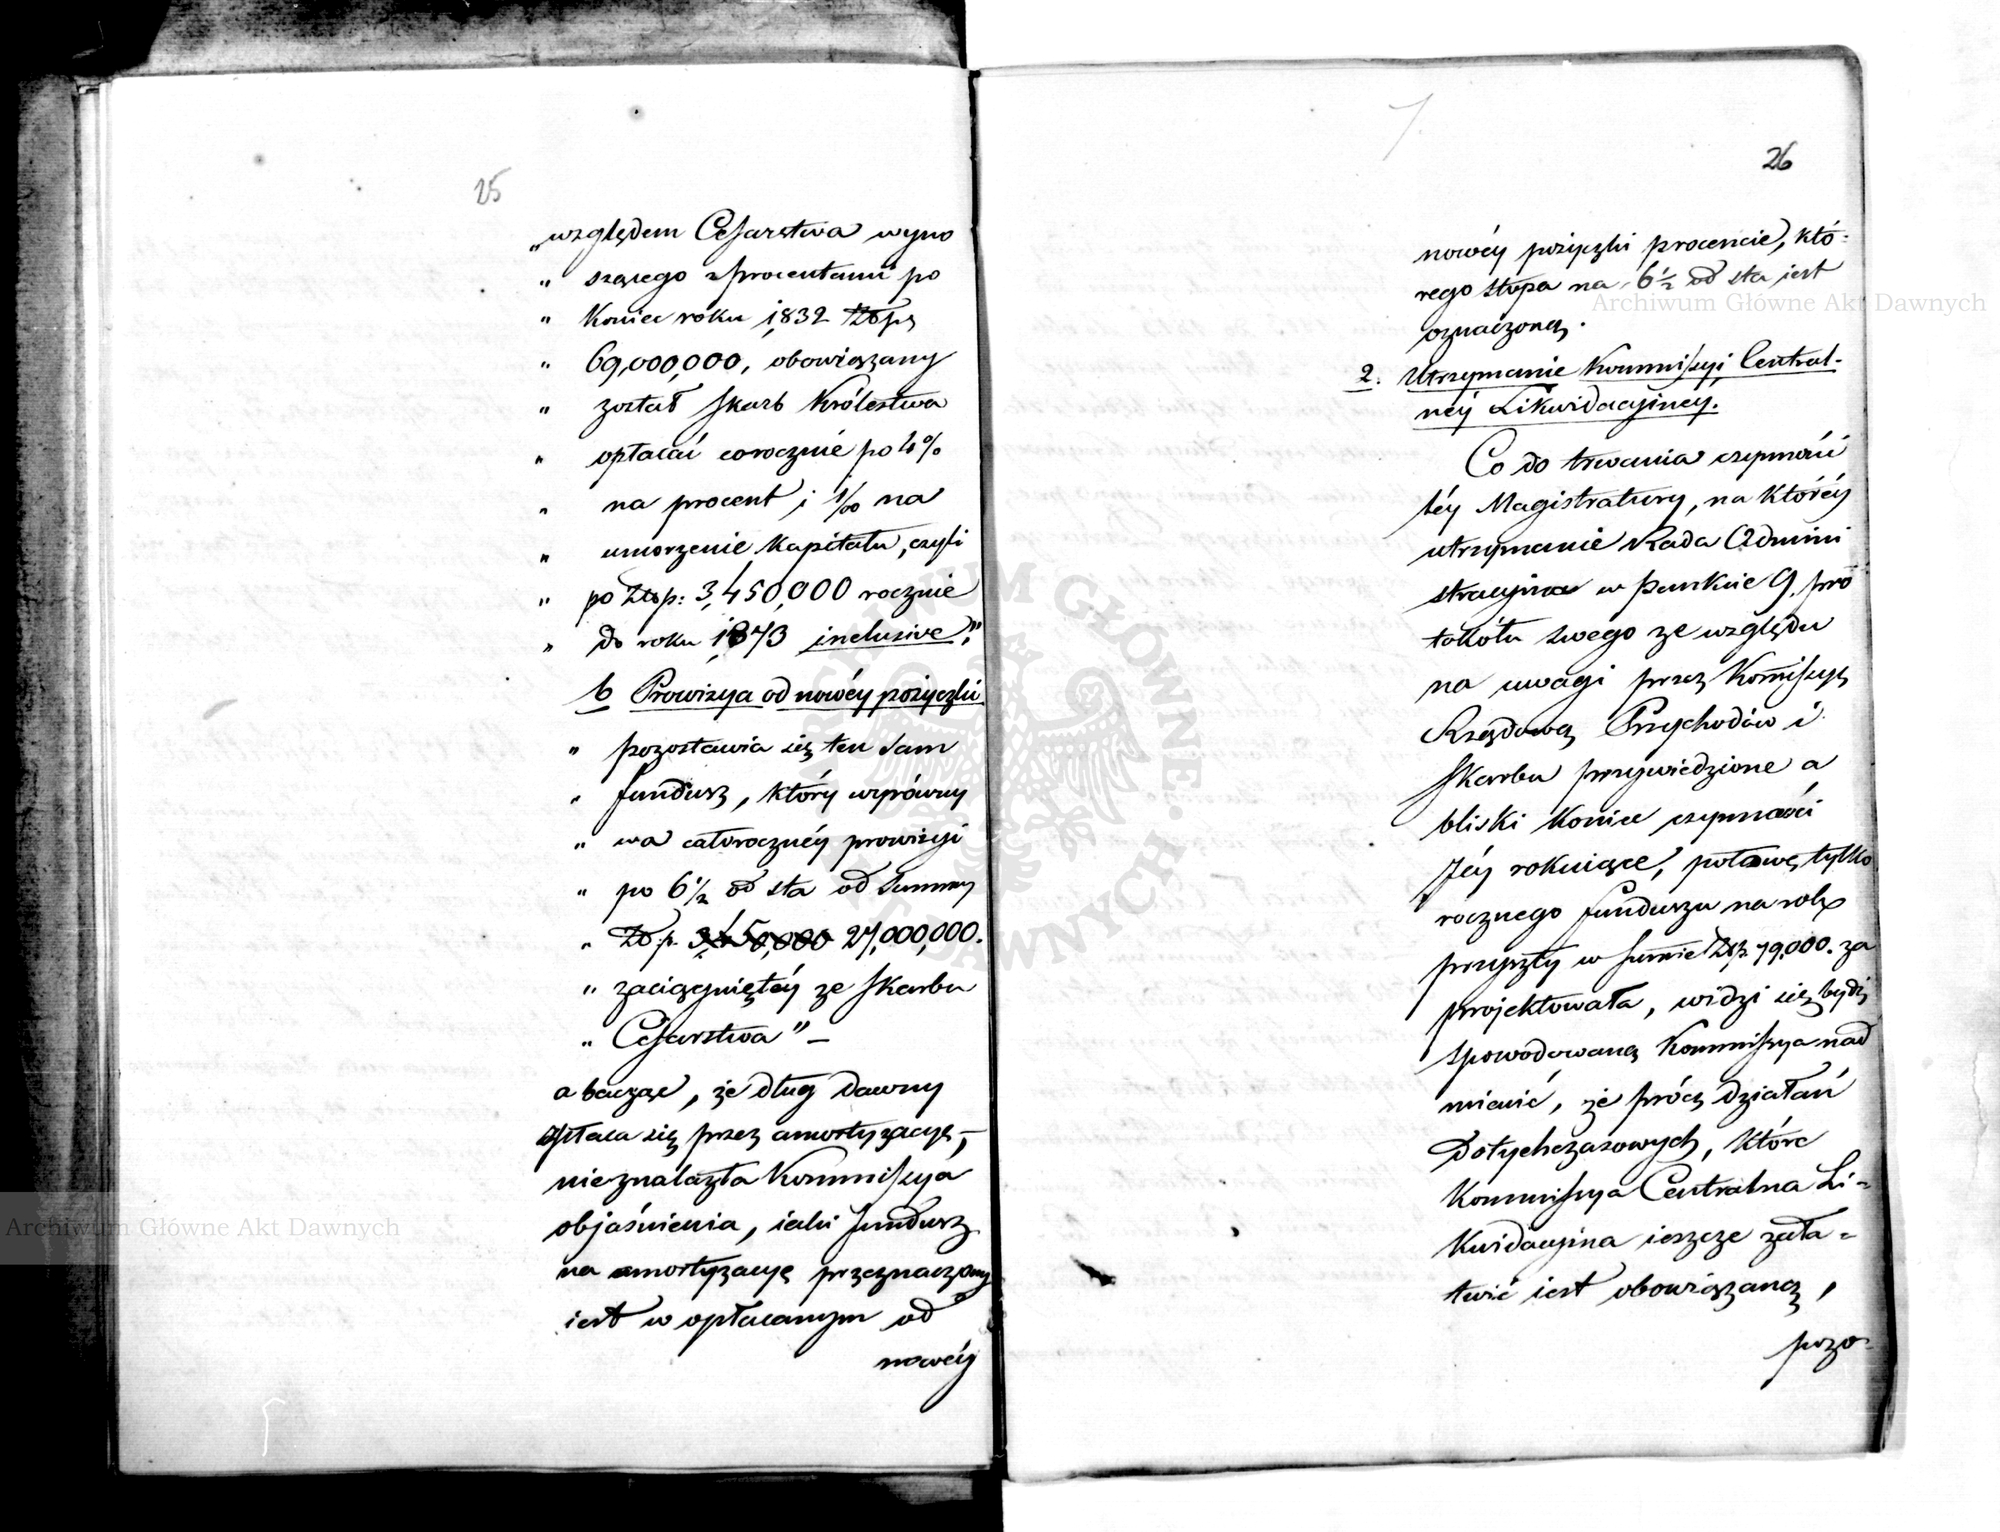 25
„względem Cesarstwa wyno
„ szącego z procentami po
„ Koniec roku 1832 Złp.
„ 69,000,000, obowiązany
„ został Skarb Królestwa
„ opłacać corocznie po 4%
„ na procent i 1/00 na
„ umorzenie Kapitału, czyli
„ po Złp: 3,450,000 rocznie
„ do roku 1873 inclusive."
b Prowizya od nowéy pożyczki
„ pozostawia się ten sam
„ fundusz, który wyrówny
„ wa całorocznéy prowizyi
„ po 6½ od sta od Summy
„ Złp. 3,450,000 27,000,000.
„ zaciągniętéy ze Skarbu
„ Cesarstwa" –
a bacząc, że dług dawny
spłaca się przez amortyzacyę,–
nie znalazła Kommissya
objaśnienia, iaki fundusz
na amortyzacyę przeznaczony
iest w opłacanym od
nowéy
7.
26
nowéy pożyczki procencie, któ-
rego stopa na 6½ od sta iest
oznaczoną.
2. Utrzymanie Kommissyi Central-
néy Likwidacyiney.
Co do trwania czynności
téy Magistratury, na któréy
utrzymanie Rada Admini
stracyina w Punkcie 9. pro
tokółu swego ze względu
na uwagi przez Komissyę
Rządową Przychodów i
Skarbu przywiedzione a
bliski koniec czynności
Jéy rokuiące, połowę tylko
rocznego funduszu na rok
przyszły w Summie Złp. 79,000. za
projektowała, widzi się bydź
spowodowaną Kommissya nad
mienić, że prócz działań
Dotychczasowych, które
Kommissya Centralna Li-
kwidacyina ieszcze zała-
twić iest obowiązaną,
pozo-
Archiwum Główne Akt Dawnych
Archiwum Główne Akt Dawnych
ARCHIWUM GŁÓWNE AKT DAWNYCH